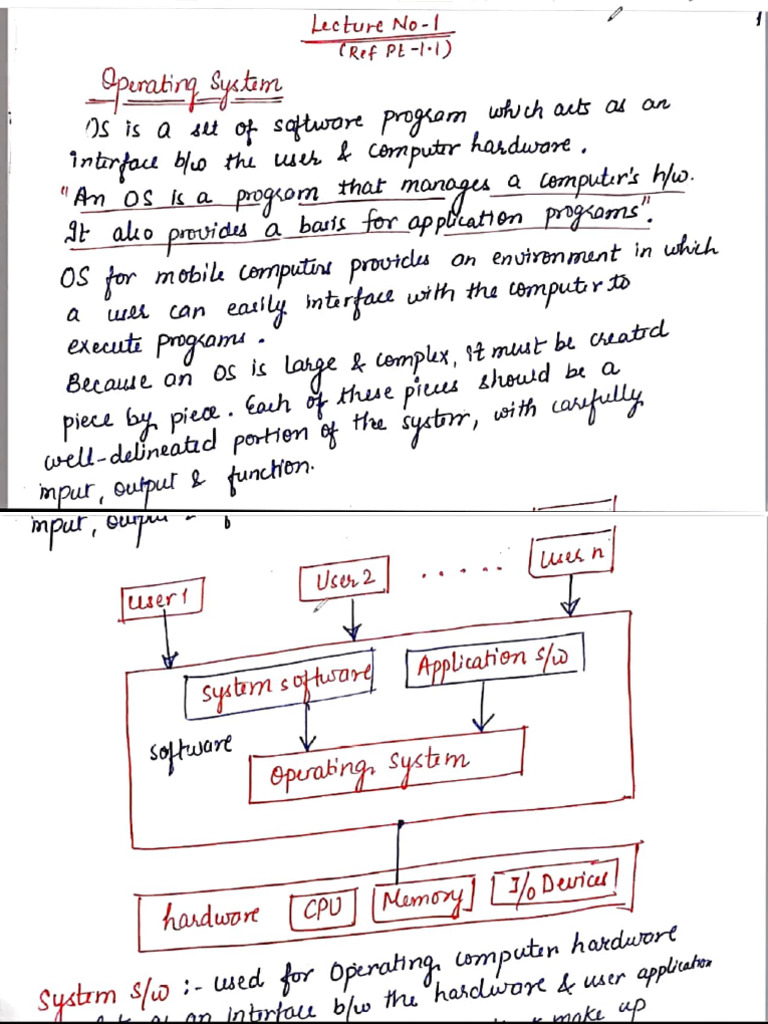 1
Lecture No-1
(Ref Pt-1.1)
Operating System
OS is a set of software program which acts as an
interface b/w the user & computer hardware.
"An OS is a program that manages a computer's h/w.
It also provides a basis for application programs".
OS for mobile computers provides an environment in which
a user can easily interface with the computer to
execute programs.
Because an OS is large & complex, it must be created
piece by piece. Each of these pieces should be a
well-delineated portion of the system, with carefully
input, output & function.
input, output &
User 1
User 2
.....
User n
System software
Application s/w
software
Operating System
hardware
CPU
Memory
I/O Devices
System s/w :- used for Operating computer hardware
as an interface b/w the hardware & user application
make up